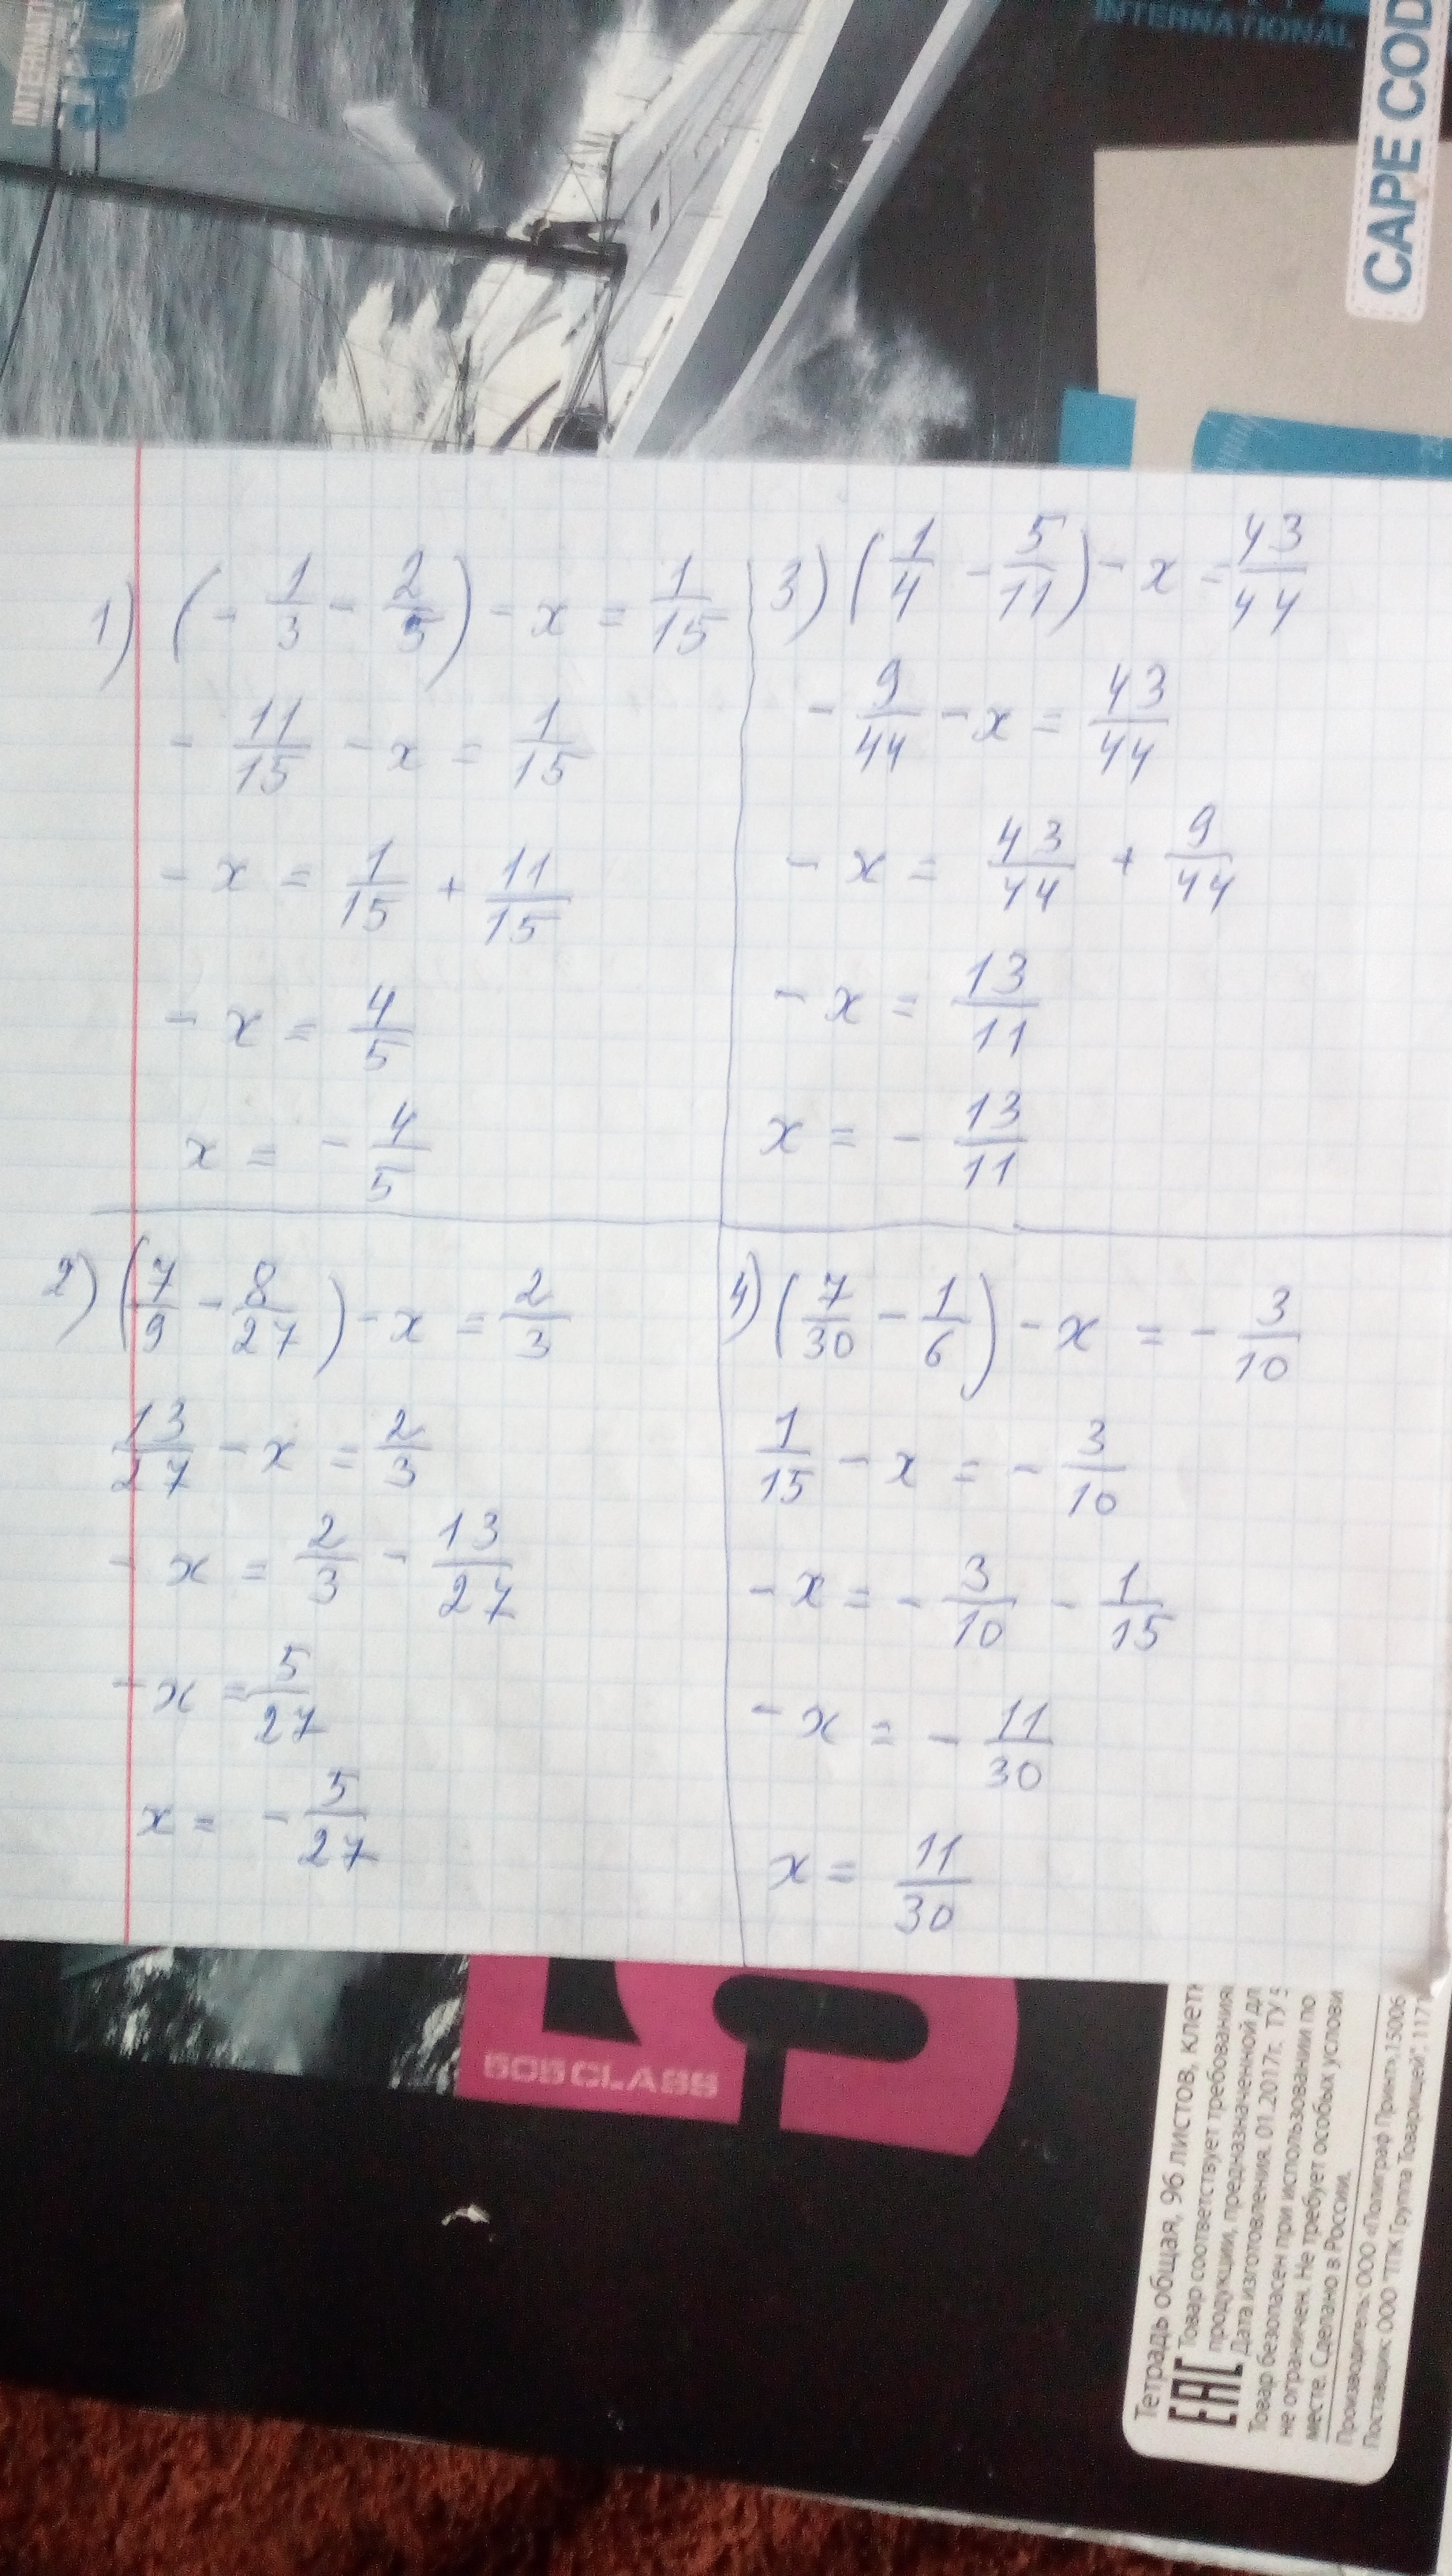 INTERNATIONAL
CAPE COD
1) (- 1/3 - 2/5) - x = 1/15
- 11/15 - x = 1/15
- x = 1/15 + 11/15
- x = 4/5
x = - 4/5
3) (1/4 - 5/11) - x = 43/44
- 9/44 - x = 43/44
- x = 43/44 + 9/44
- x = 13/11
x = - 13/11
2) (7/9 - 8/27) - x = 2/3
13/27 - x = 2/3
- x = 2/3 - 13/27
- x = 5/27
x = - 5/27
4) (7/30 - 1/6) - x = - 3/10
1/15 - x = - 3/10
- x = - 3/10 - 1/15
- x = - 11/30
x = 11/30
Тетрадь общая, 96 листов,
EAC
Товар соответствует требования
продукции, предназначенной
Дата изготовления. 01.2017г. ТУ
Товар безопасен при использовании по
не ограничен. Не требует особых услови
месте. Сделано в России.
Производитель: ООО «Полиграф Принт», 15006
Поставщик: ООО "ТПК Группа Товарищей",